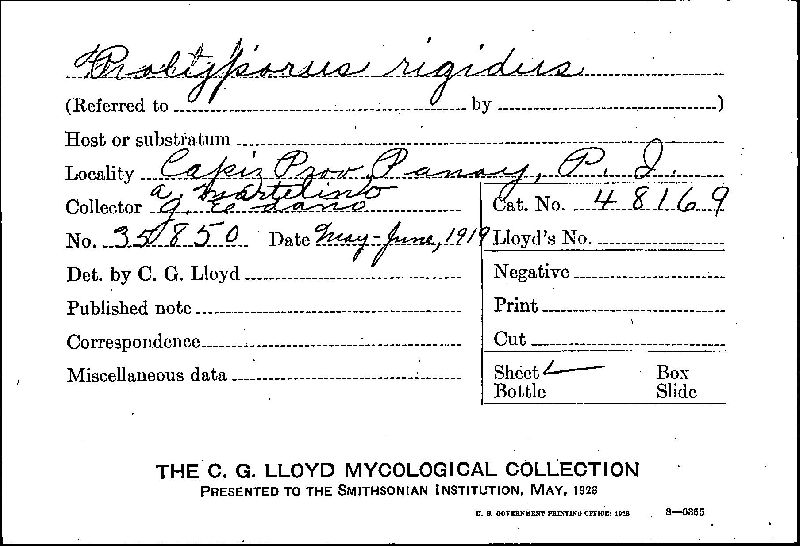 Polyporus rigidus
(Referred to by )
Host or substratum
Locality Capiz Prov. Panay, P. I.
A. Martelino
Collector G. Edano
Cat. No. 48169
No. 35850 Date May-June, 1919
Lloyd's No.
Det. by C. G. Lloyd
Negative
Published note
Print
Correspondence
Cut
Miscellaneous data
Sheet Box
Bottle Slide
THE C. G. LLOYD MYCOLOGICAL COLLECTION
PRESENTED TO THE SMITHSONIAN INSTITUTION, MAY, 1928
U. S. GOVERNMENT PRINTING OFFICE: 1928 8—6355